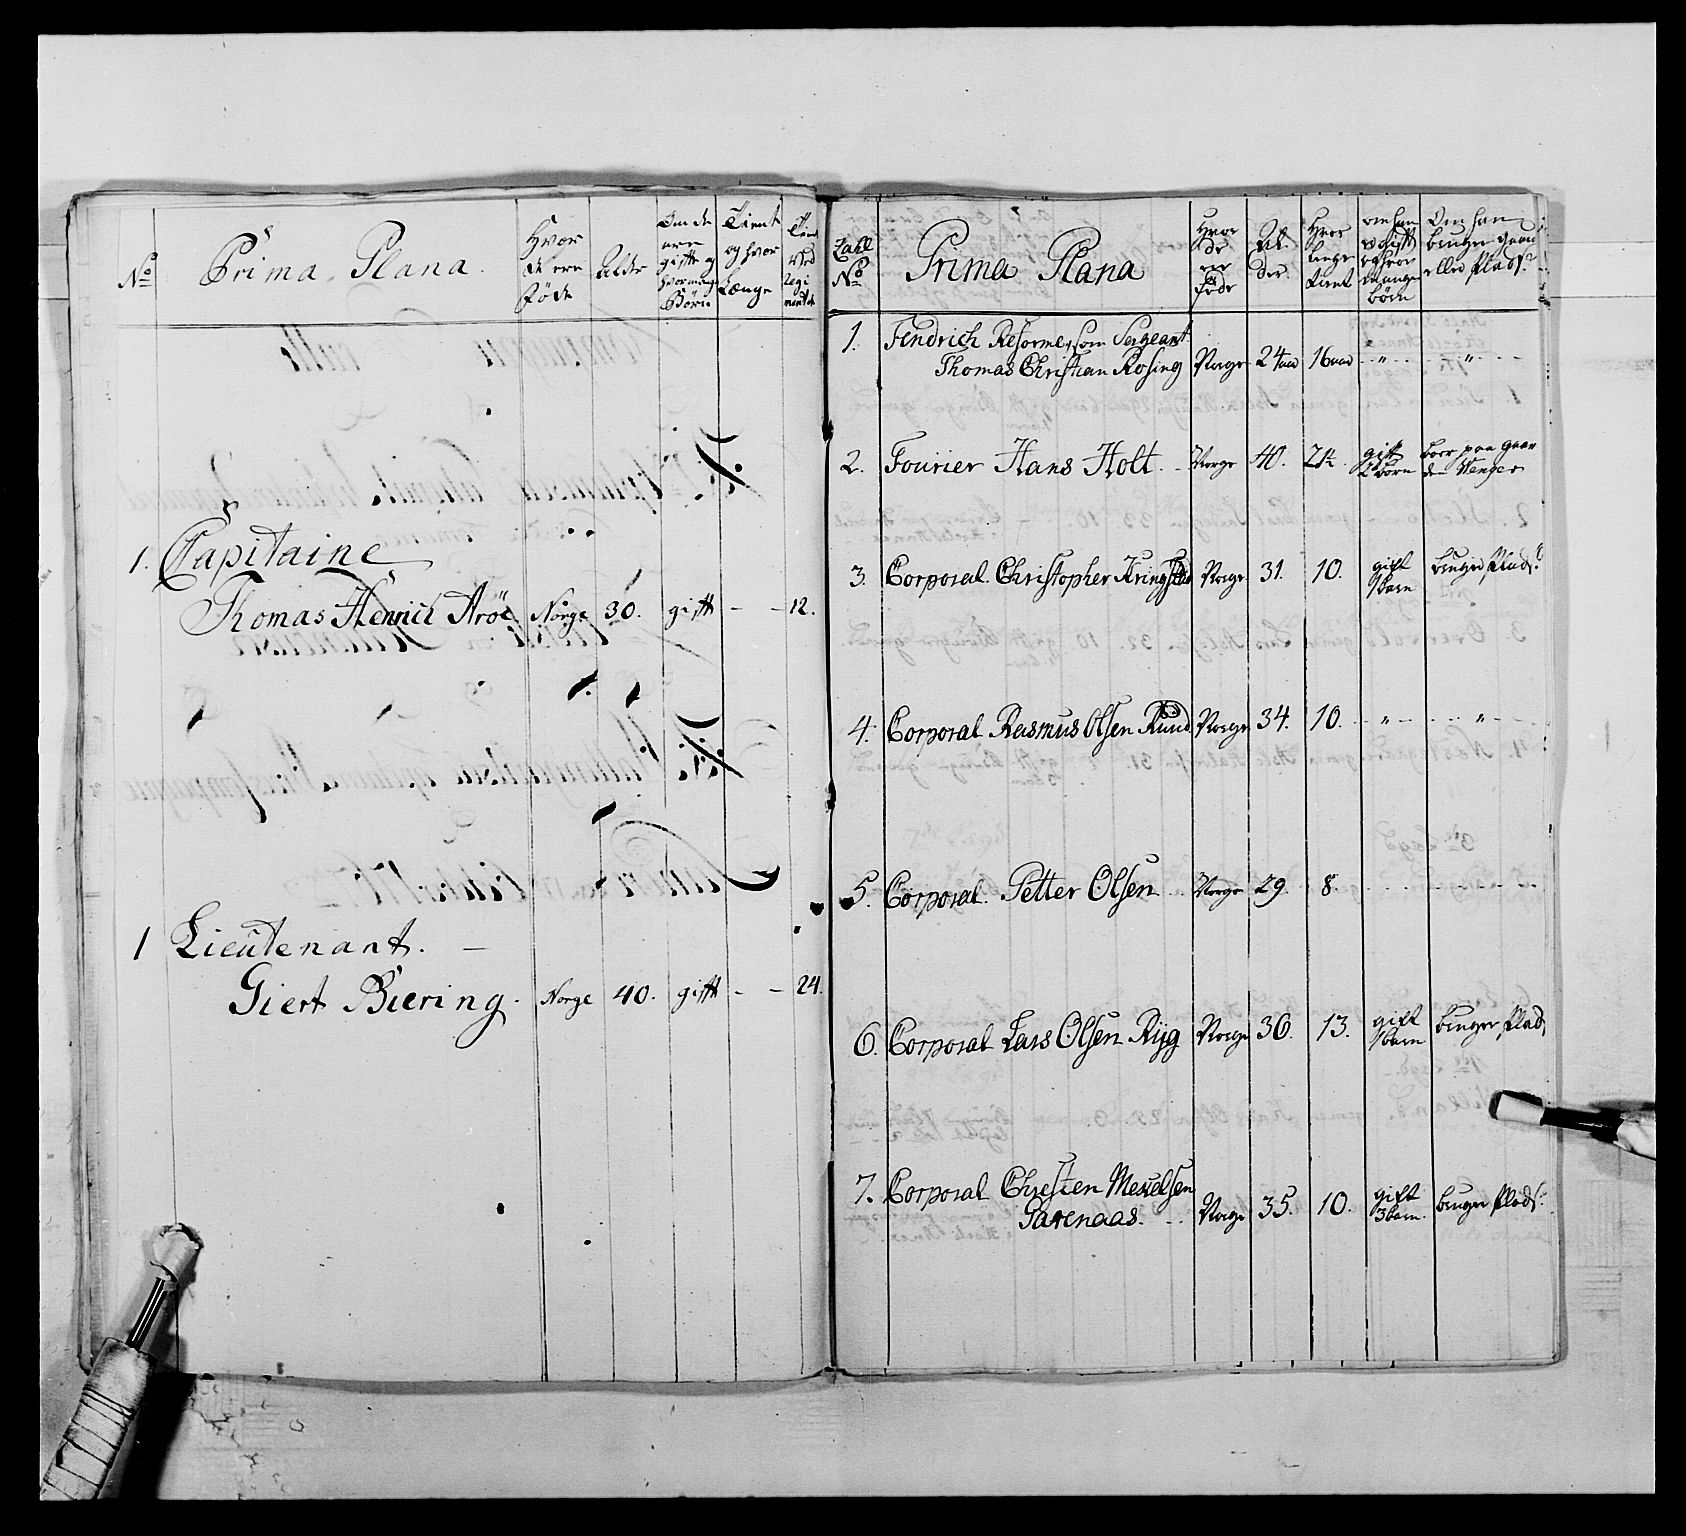 No
Prima Plana.
Hvor de ere Føde
Alder
Om de ere gifte og hvor mange Børn
Tient og hvor Længe
Tient ved Regimentet
1. Capitaine
Thomas Henrich Aröe Norge 30. gift - - 12.
1 Lieutenant. -
Giert Biering. Norge 40. gift - - 24.
Zahl No
Prima Plana
Hvor de ere Føde
Alder.
Hvor længe tient
om han er gift og hvor mange børn
Om han bruger gaard eller Plads?
1. Fendrich Reforme, som Sergeant
Thomas Christian Rosing Norge 24 aar 16 aar - " - - " -
2. Fourier Hans Holt. Norge 40. 21 gift 2 børn boer paa gaarden Stenger
3. Corporal. Christopher Kringstad Norge 31. 10. gift 1 barn bruger Plads.
4. Corporal Rasmus Olsen Rund Norge 34. 10. - " - - " -
5. Corporal. Petter Olsen Norge 29. 8.
6. Corporal Lars Olsen Ryg Norge 36. 13. gift 1 barn bruger Plads
7. Corporal Christen
Norge 35. 10. gift 3 barn. bruger Plads.